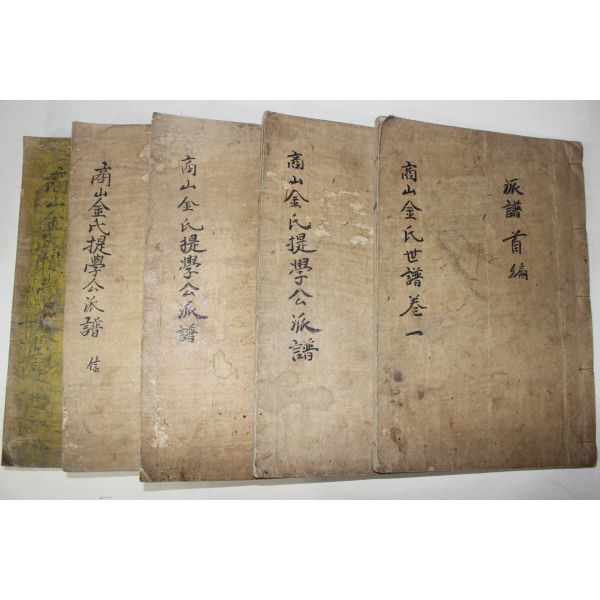 派譜首編
商山金氏世譜卷一
商山金氏提學公派譜
商山金氏提學公派譜
商山金氏提學公派譜
信
商山金氏